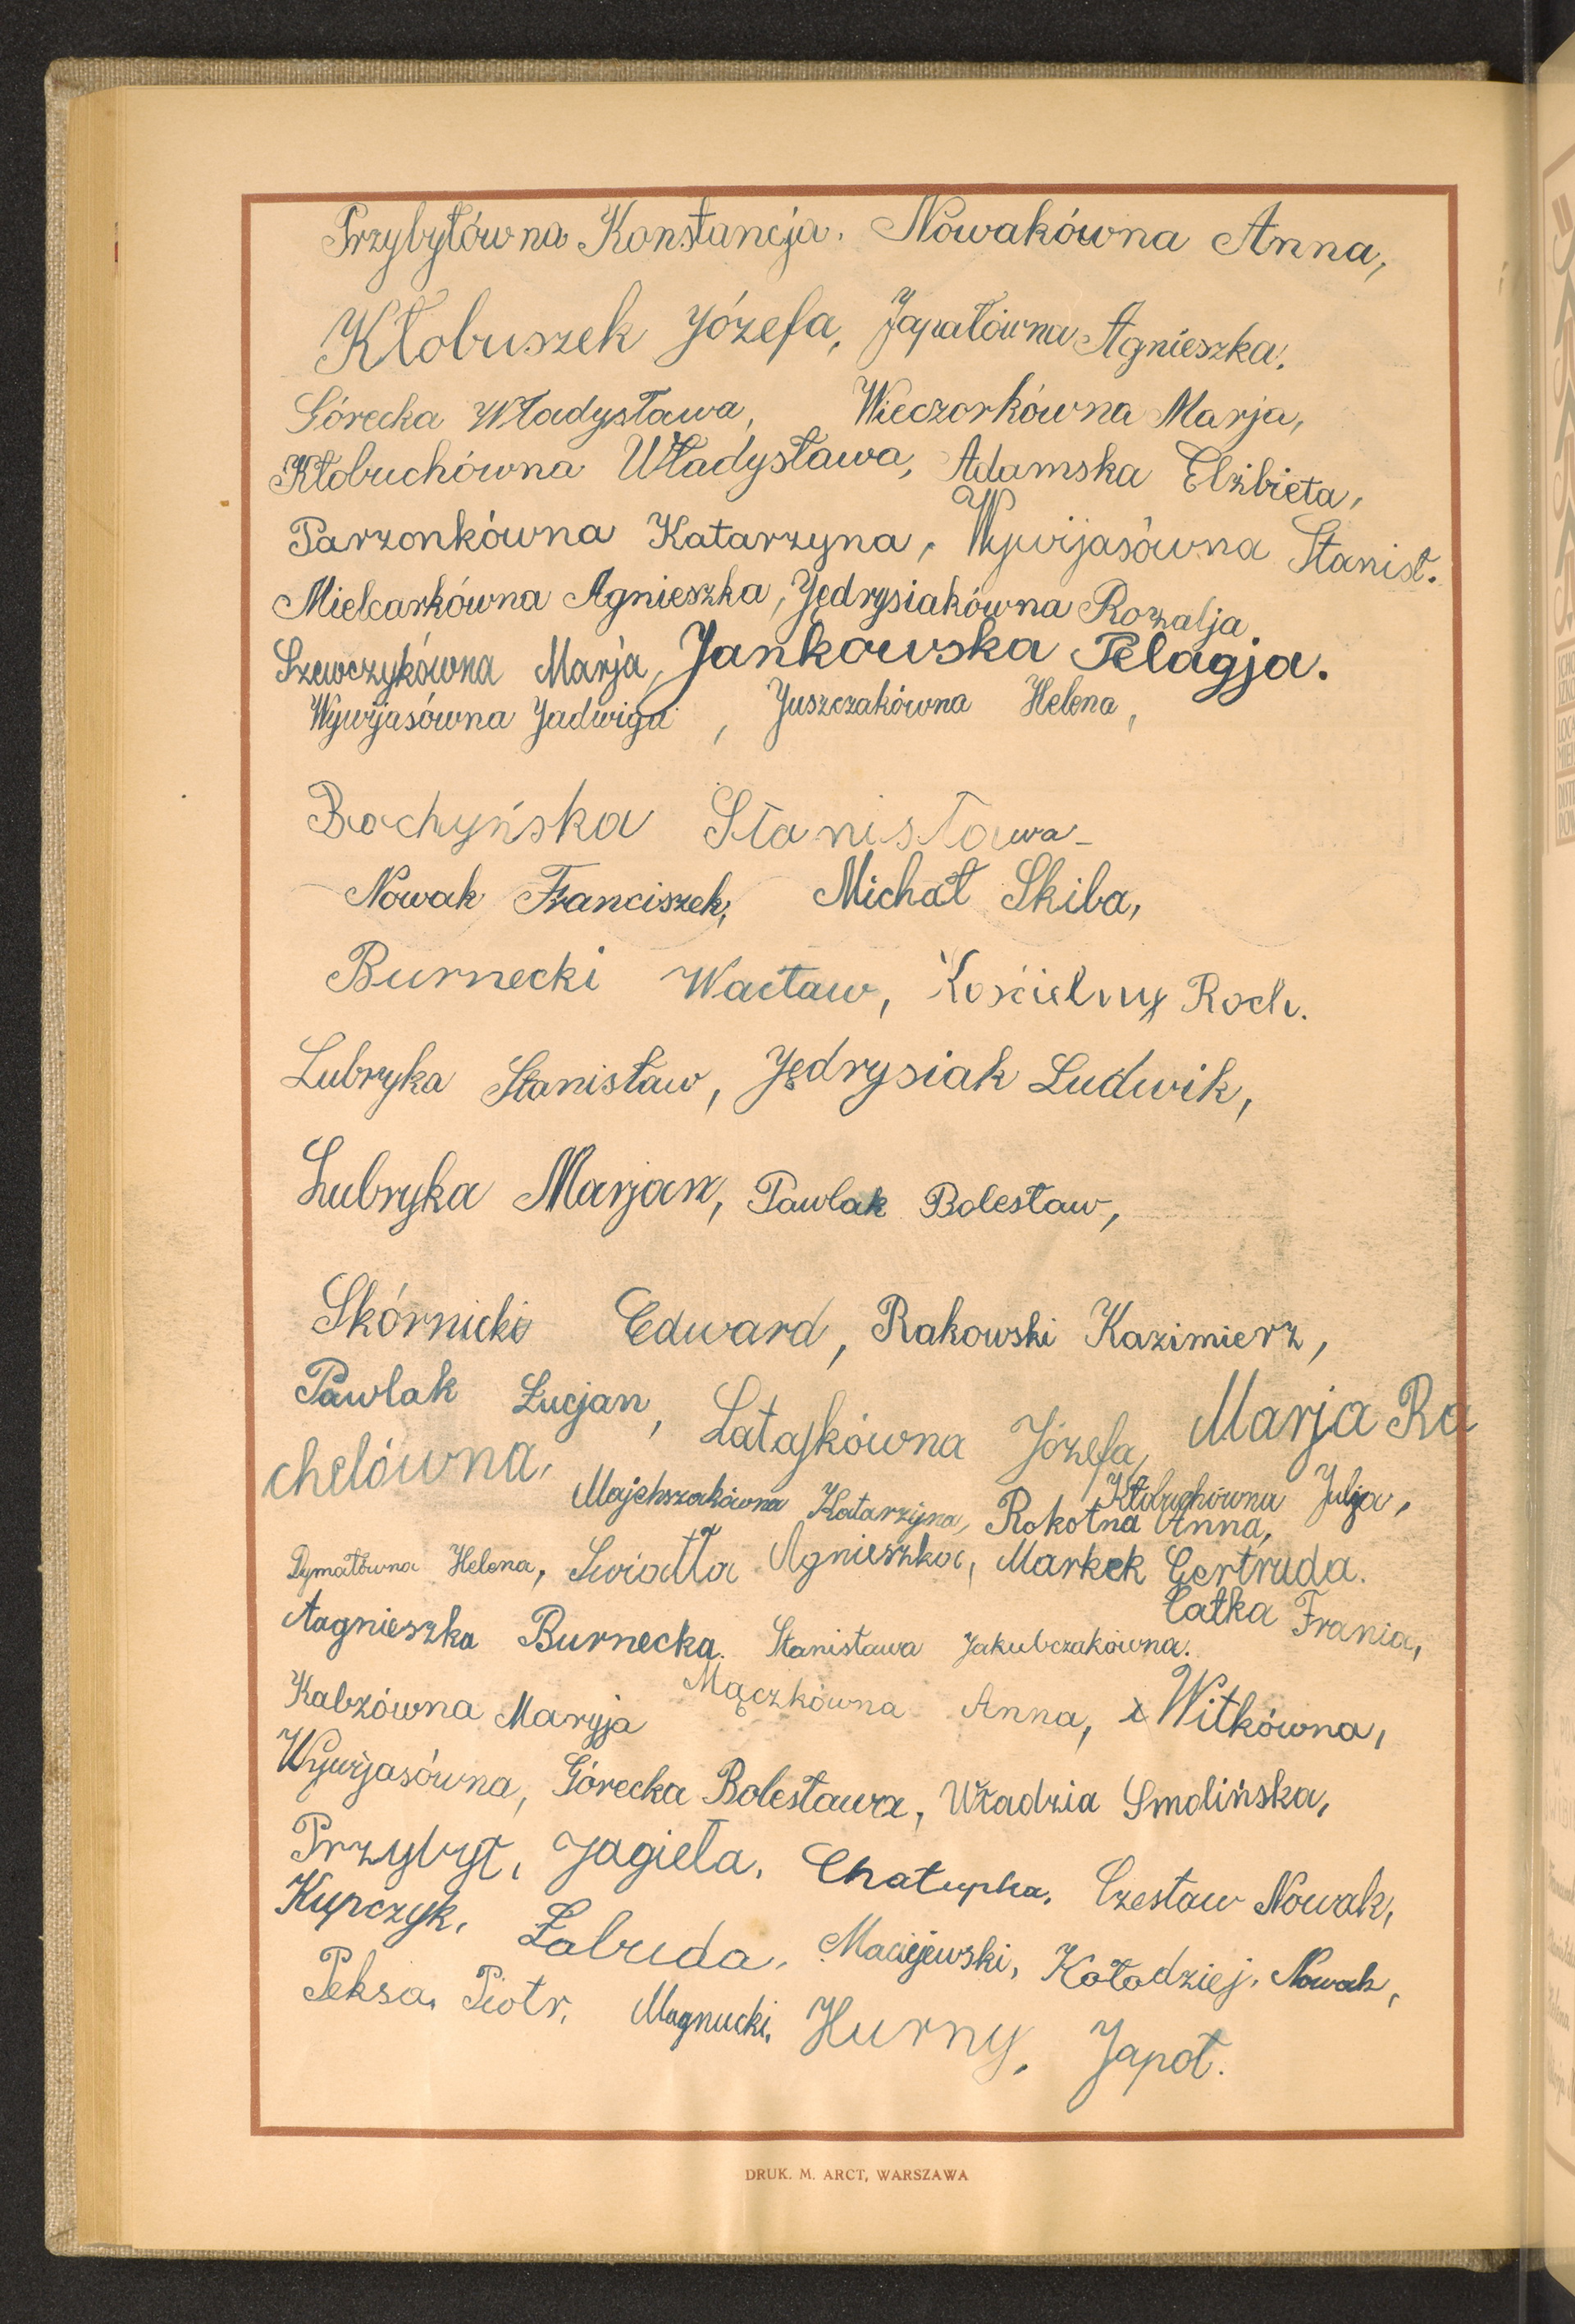 Przybyłówna Konstancja. Nowakówna Anna,
Kłobuszek Józefa, Japałówna Agnieszka.
Górecka Władysława, Wieczorkówna Marja,
Kłobuchówna Władysława, Adamska Elżbieta,
Parzonkówna Katarzyna, Wywijasówna Stanisł.
Mielcarkówna Agnieszka, Jędrysiakówna Rozalja.
Szewczykówna Marja, Jankowska Pelagja.
Wywijasówna Jadwiga, Juszczakówna Helena,
Bochyńska Stanisława
Nowak Franciszek, Michał Skiba,
Burnecki Wacław, Kościelny Roch.
Lubryka Stanisław, Jędrysiak Ludwik,
Lubryka Marjan, Pawlak Bolesław,
Skórnicki Edward, Rakowski Kazimierz,
Pawlak Łucjan, Latajkówna Józefa, Marja Ra
chelówna, Kłobuchówna Julja,
Majchszakówna Katarzyna, Rokotna Anna,
Dymałówna Helena, Swiatła Agnieszka, Markek Gertruda.
Łatka Frania,
Aagnieszka Burnecka. Stanisława Jakubczakówna.
Kabzówna Maryja Mączkówna Anna, Witkówna,
Wywijasówna, Górecka Bolesława, Władzia Smolińska,
Przybył, Jagieła, Chałupka, Czesław Nowak,
Kupczyk, Łabuda, Maciejewski, Kołodziej, Nowak,
Peksa, Piotr, Magnucki, Hurny, Japoł.
DRUK. M. ARCT, WARSZAWA